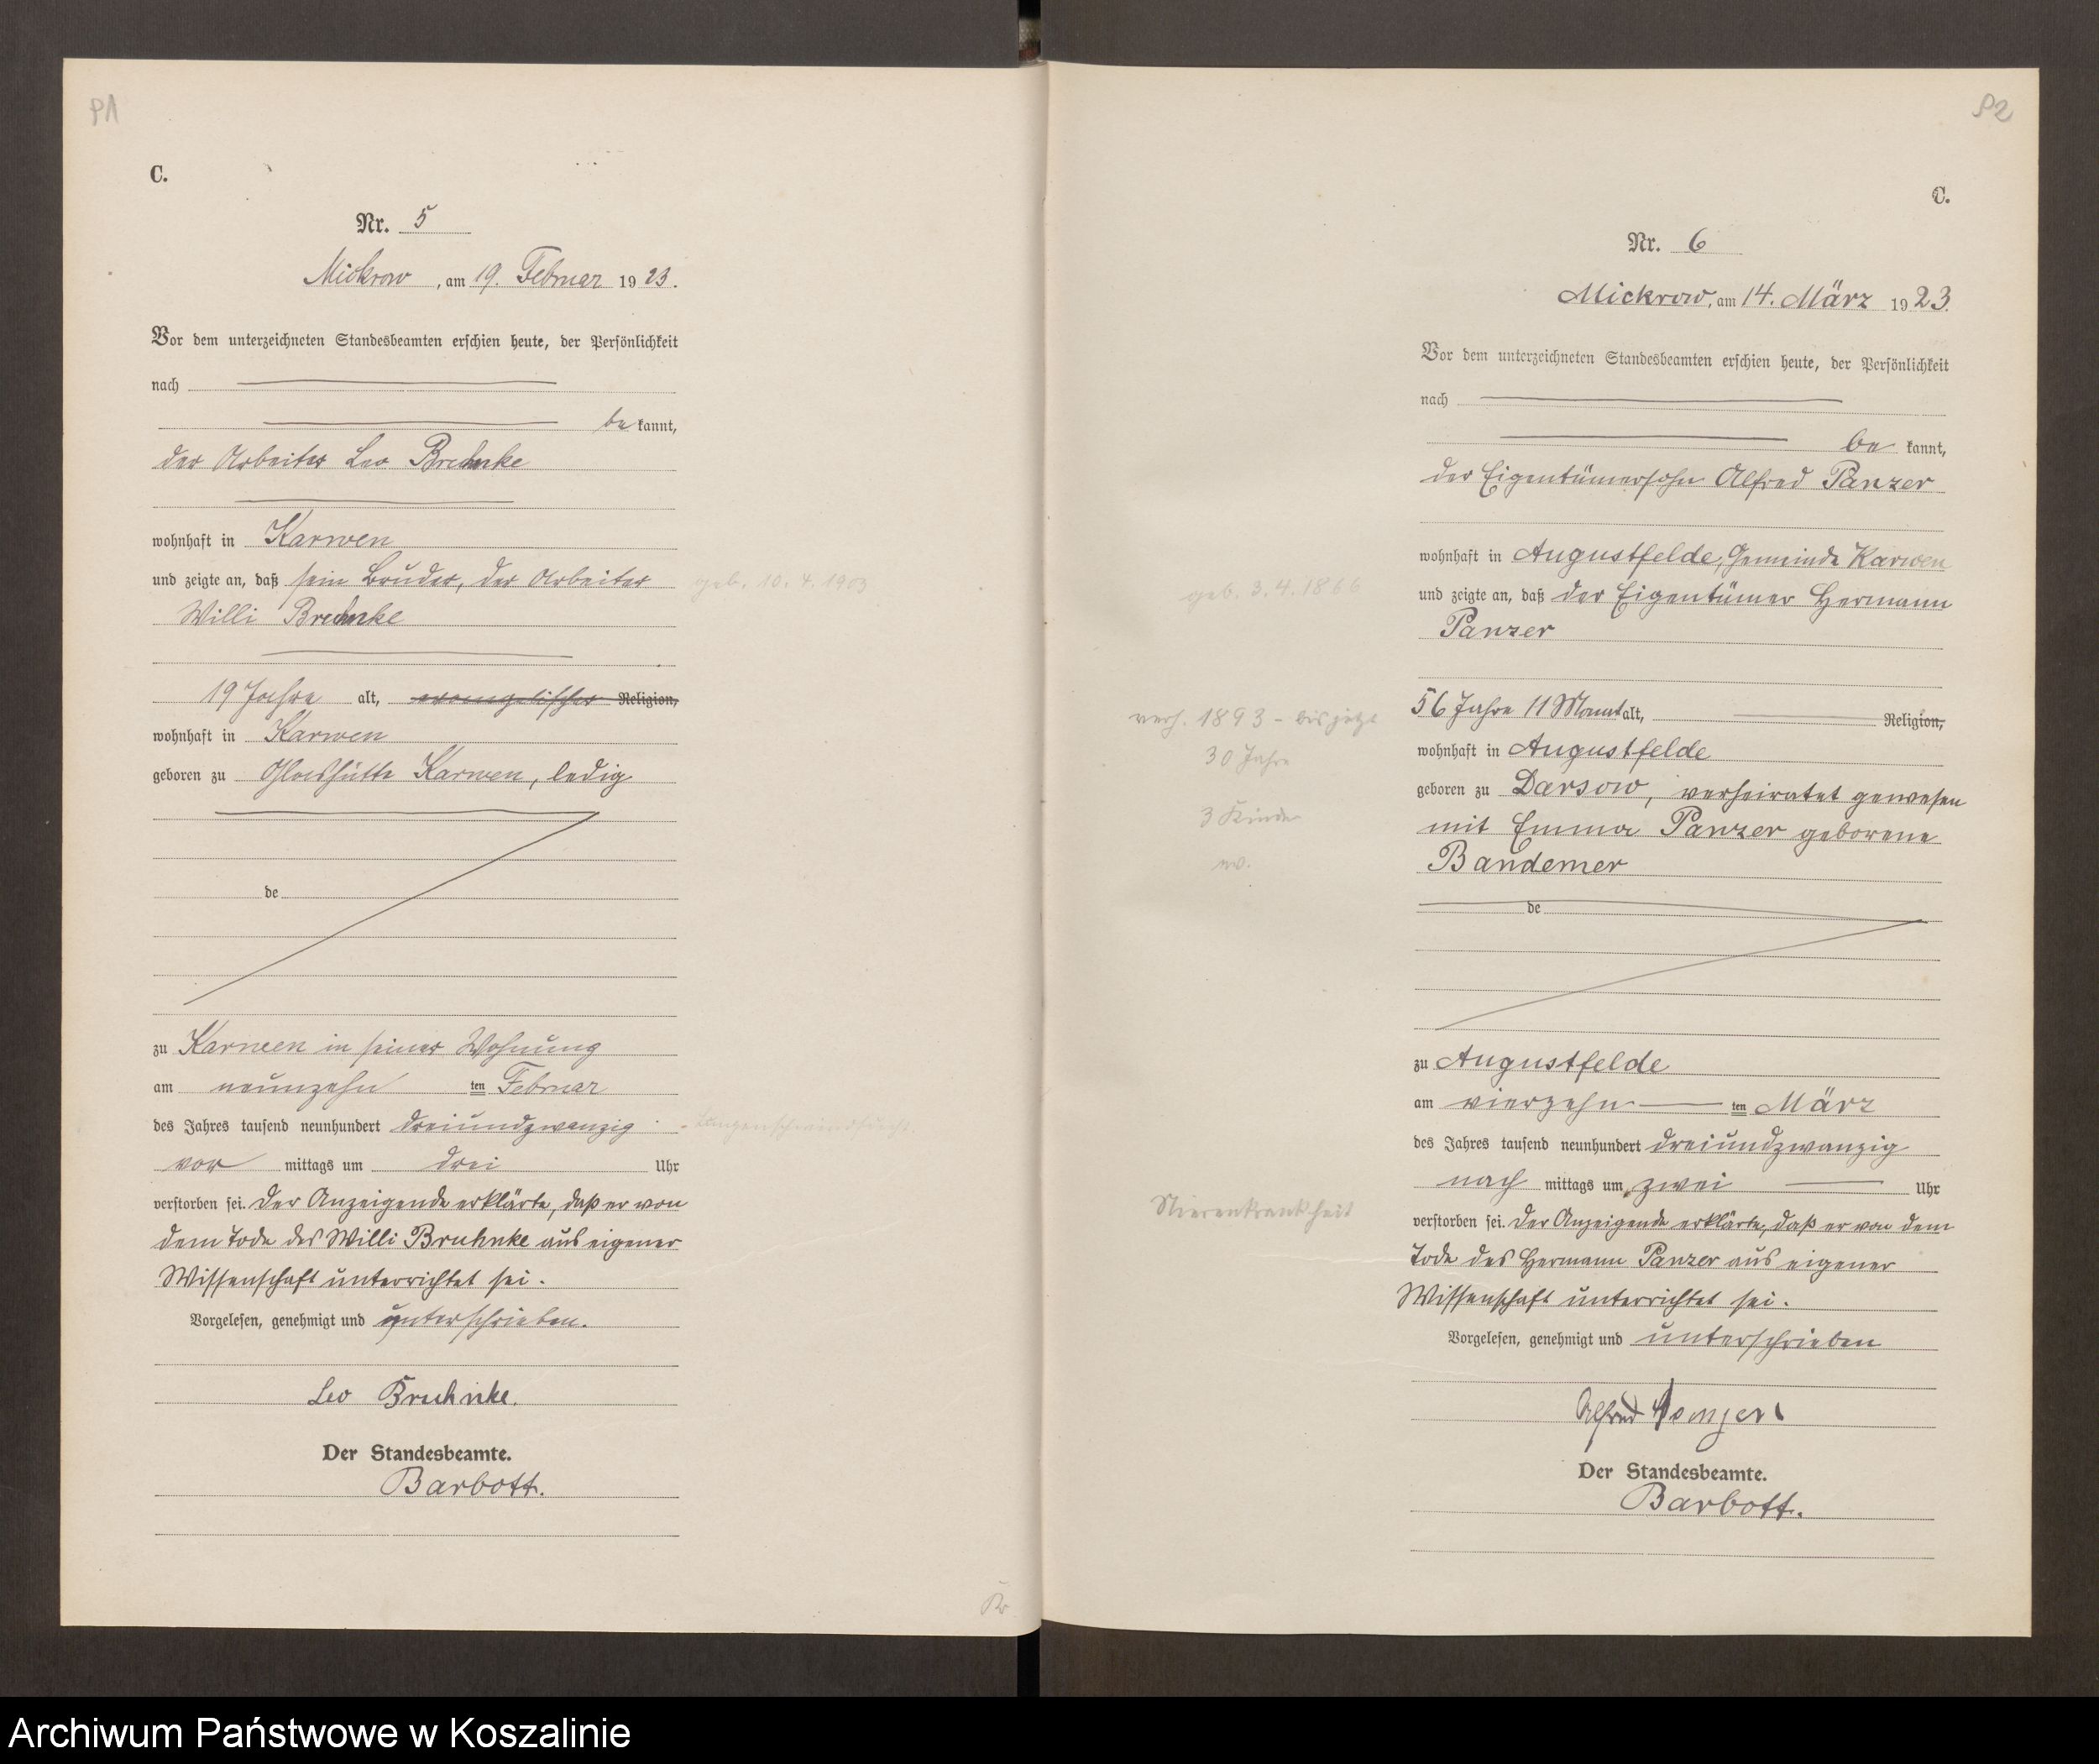 P1
C.
Nr. 5
Mickrow, am 19. Februar 1923.
Vor dem unterzeichneten Standesbeamten erschien heute, der Persönlichkeit
nach
bekannt,
der Arbeiter Leo Bruhnke
wohnhaft in Karwen
und zeigte an, daß sein Bruder, der Arbeiter
geb. 10. 4. 1903
Willi Bruhnke
19 Jahre alt, evangelischer Religion,
wohnhaft in Karwen
geboren zu Glashütte Karwen, ledig
de
zu Karwen in seiner Wohnung
am neunzehnten Februar
des Jahres tausend neunhundert dreiundzwanzig
Lungenschwindsucht
vor mittags um drei Uhr
verstorben sei. Der Anzeigende erklärte, daß er von
dem Tode des Willi Bruhnke aus eigener
Wissenschaft unterrichtet sei.
Vorgelesen, genehmigt und unterschrieben.
Leo Bruhnke.
Der Standesbeamte.
Barbott.
C.
Nr. 6
Mickrow, am 14. März 1923.
Vor dem unterzeichneten Standesbeamten erschien heute, der Persönlichkeit
nach
bekannt,
der Eigentümersohn Alfred Panzer
wohnhaft in Augustfelde, Gemeinde Karwen
geb. 3. 4. 1866
und zeigte an, daß der Eigentümer Hermann
Panzer
56 Jahre 11 Monat alt, Religion,
verh. 1893 - bis jetzt
30 Jahre
wohnhaft in Augustfelde
geboren zu Darsow, verheiratet gewesen
3 Kinder
mit Emma Panzer geborene
Bandemer
de
zu Augustfelde
am vierzehnten März
des Jahres tausend neunhundert dreiundzwanzig
nach mittags um zwei Uhr
Nierenkrankheit
verstorben sei. Der Anzeigende erklärte, daß er von dem
Tode des Hermann Panzer aus eigener
Wissenschaft unterrichtet sei.
Vorgelesen, genehmigt und unterschrieben
Alfred Panzer
Der Standesbeamte.
Barbott.
Archiwum Państwowe w Koszalinie